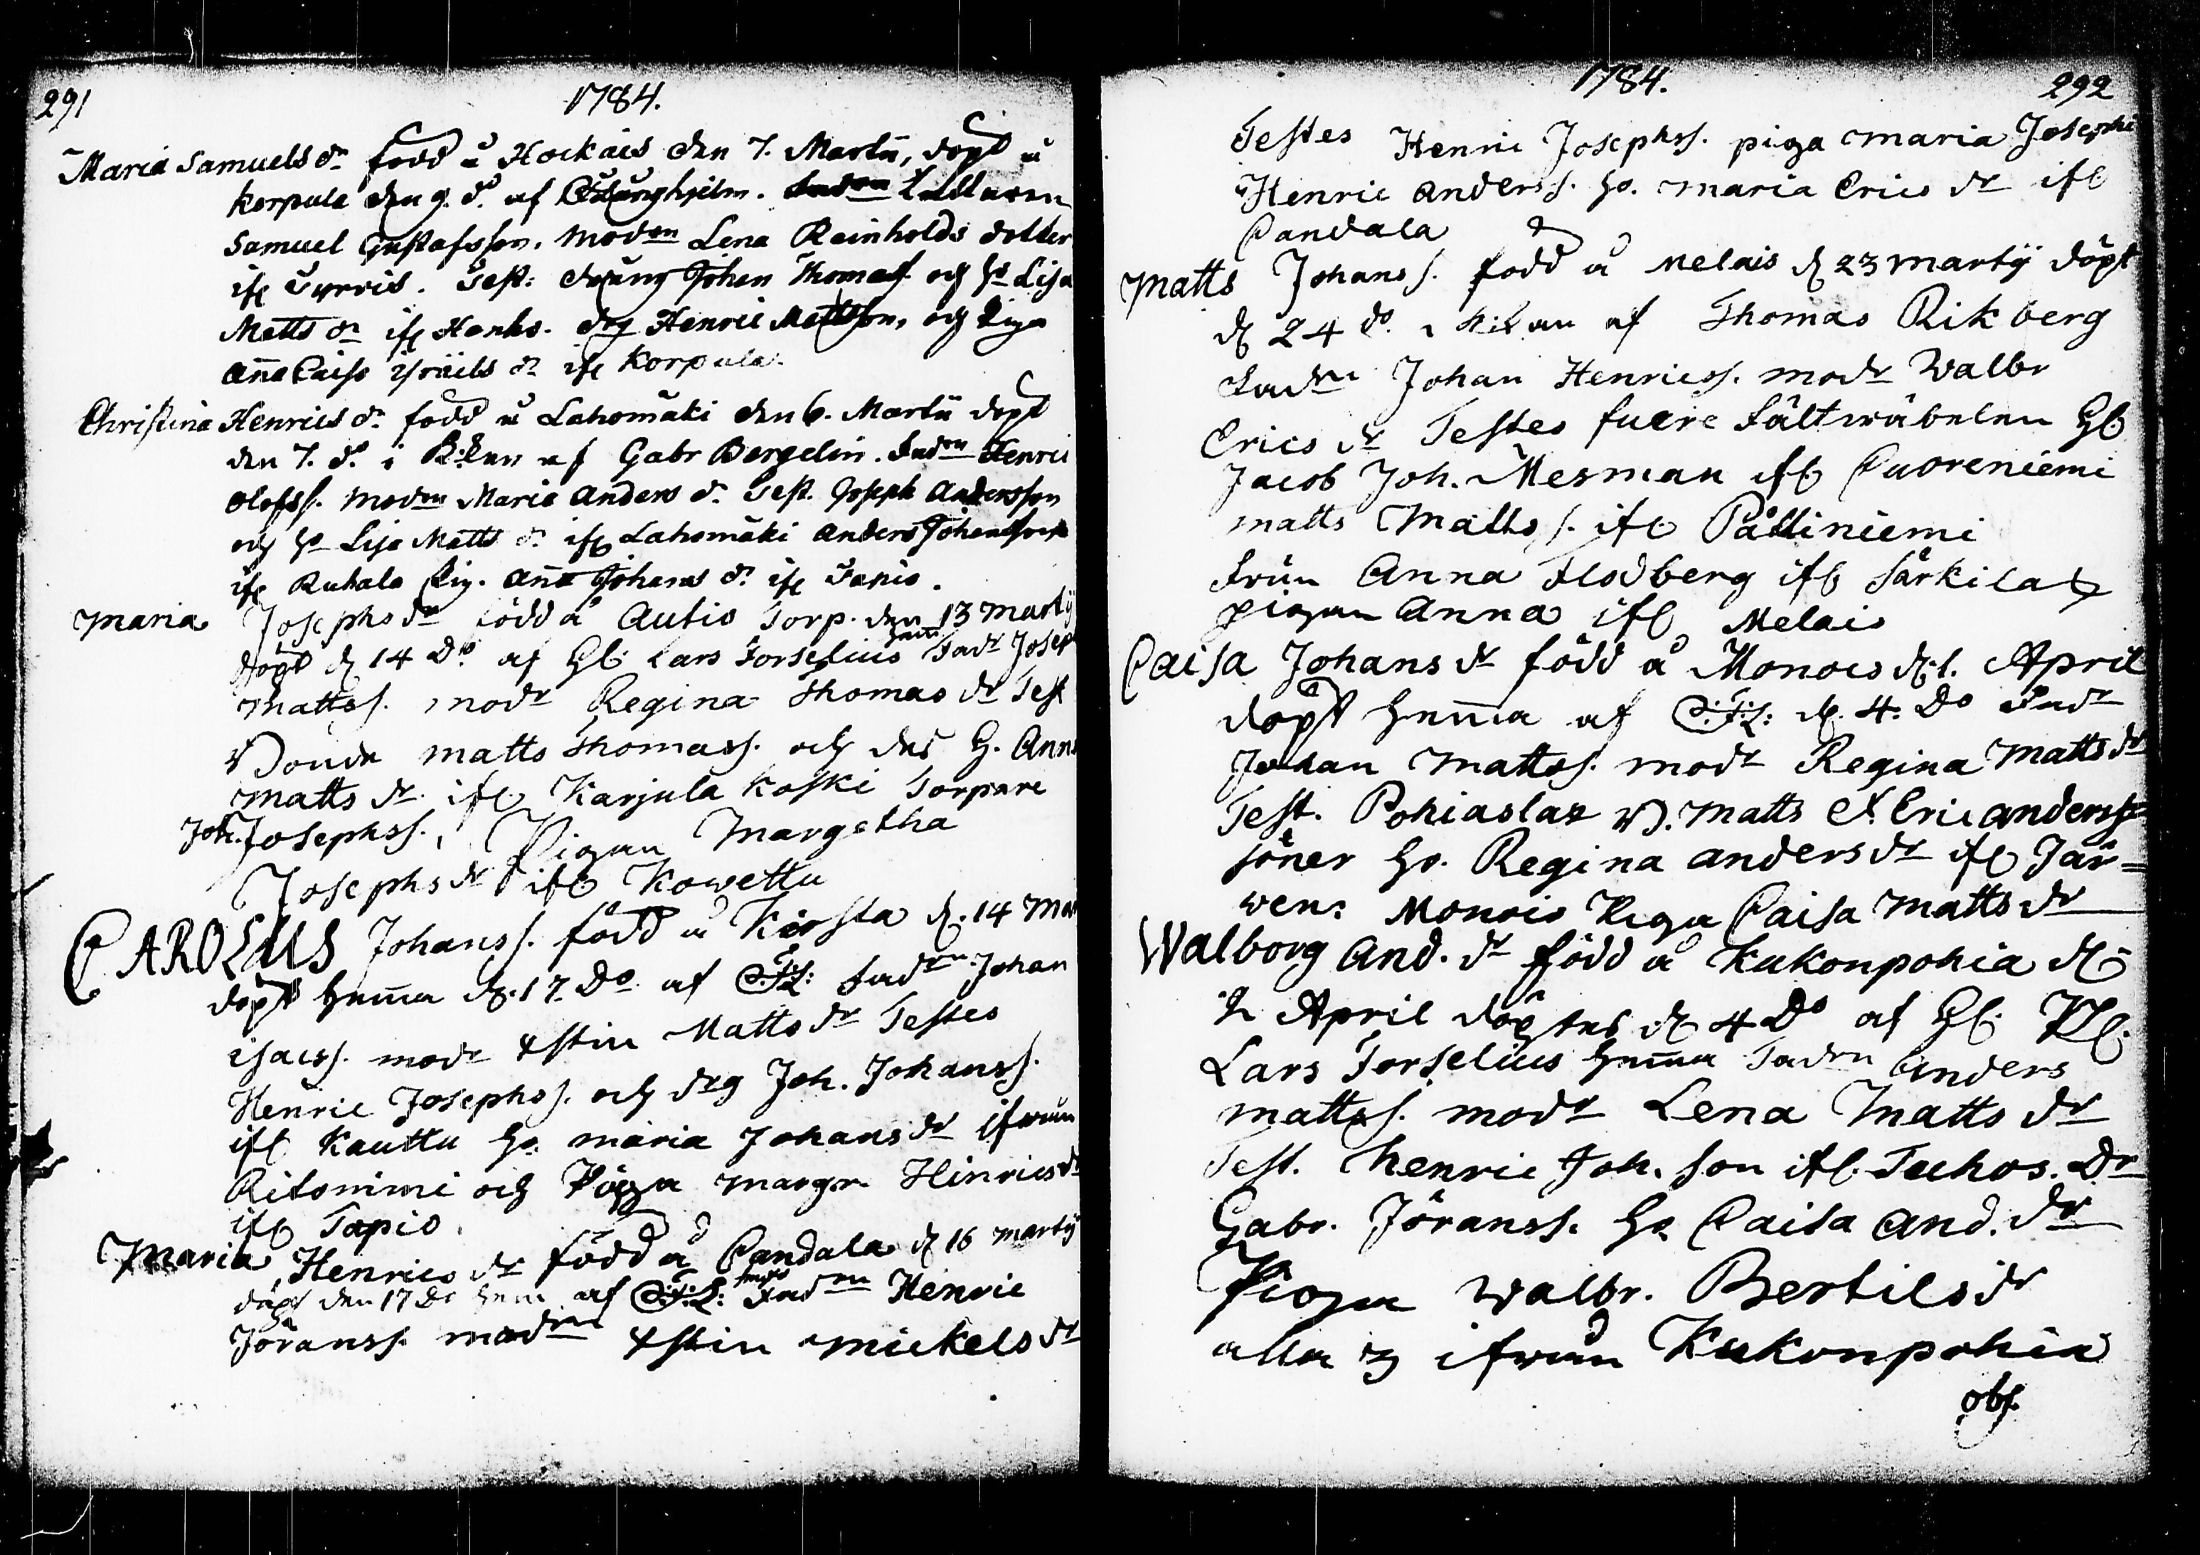 291
1784.
Maria Samuels dr född å Hockais den 7. Martii, döpt å
Korpula den 9. do af Ljunghjelm. Saldaten
Samuel Gustafsson. Modren Lena Reinholds dotter
ifr Tyrris. Test: Johan Thomass. och ho Lisa
Matts dr ifr Hanho. drg Henric Mattsson, och Piga
Anna Caisa Israels dr ifr Korpula.
Christina Henrics dr född å Lahomäki den 6. Martii döpt
den 7. do i Kkan af Gabr Bergelin. Fadren Henric
Olofss. Modren Maria Anders dr Test. Joseph Andersson
och ho Lisa Matts dr ifr Lahomäki Anders Johansson
ifr Ruhala Pig. Anna Johans dr ifr Tapio.
Maria Josephs dr född å Autio Torp. den 13 Martij
döpt d 14 Do af Hl Lars Forselius hema Fadr Josep
Mattss. modr Regina Thomas dr Test
Bonde Matts Thomass. och des H. Anna
Matts dr ifr Karjula koski Torpare
Joh. Josephss. Pigan Margetha
Josephs dr ifr Kowettu
CAROLUS Johanss. född å Kirsta d. 14 Mar
döpt hemma d. 17 Do af C.F.L: Fadren Johan
Isacss. modr Xstin Matts dr Testes
Henric Josephss. och drg Joh. Johanss.
ifr Kauttu ho maria Johans dr ifrån
Ritonimi och Piga Margr. Hinrics dr
ifr Tapio.
Maria Henrics dr född å Candala d 16 Martij
döpt den 17 Do hem af C.F.L: Fadren Henric
Jöranss. modren Xstin Mickels dr
1784.
292
Testes Henric Josephss. piga Maria Josephs
Henric Anderss. ho. Maria Erics dr ifr
Candala
Matts Johanss. född å Melais d 23 Martij döpt
d 24 do i Kkan af Thomas Rikberg
Fadren Johan Henricss. modr Walbr
Erics dr Testes fuere Fältwäbelen Hl
Jacob Joh. Mesman ifr Cuoreniemi
Matts Mattss. ifr Pålliniemi
Frun Anna Flodberg ifr Särkila &
pigan Anna ifr Melais
Caisa Johans dr född å Monois d. 1. April
döpt hemma af C.F.L: d. 4. Do Fadr
Johan Mattss. modr Regina Matts dr
Test. Pohiaslax B. Matts & Eric anders=
söner ho. Regina anders dr ifr Jär=
wen: Monois Piga Caisa Matts dr
Walborg And. dr född å Kukonpohia d
2 April döptes d 4 Do af Hl. Pl.
Lars Forselius hemma Fadren Anders
Mattss. modr Lena Matts dr
Test. Henric Joh. son ifr Tuhos. Dr
Gabr. Jöranss. ho Caisa And. dr
Pigan Walbr. Bertils dr
alla 3 ifrån Kukonpohia
obs.